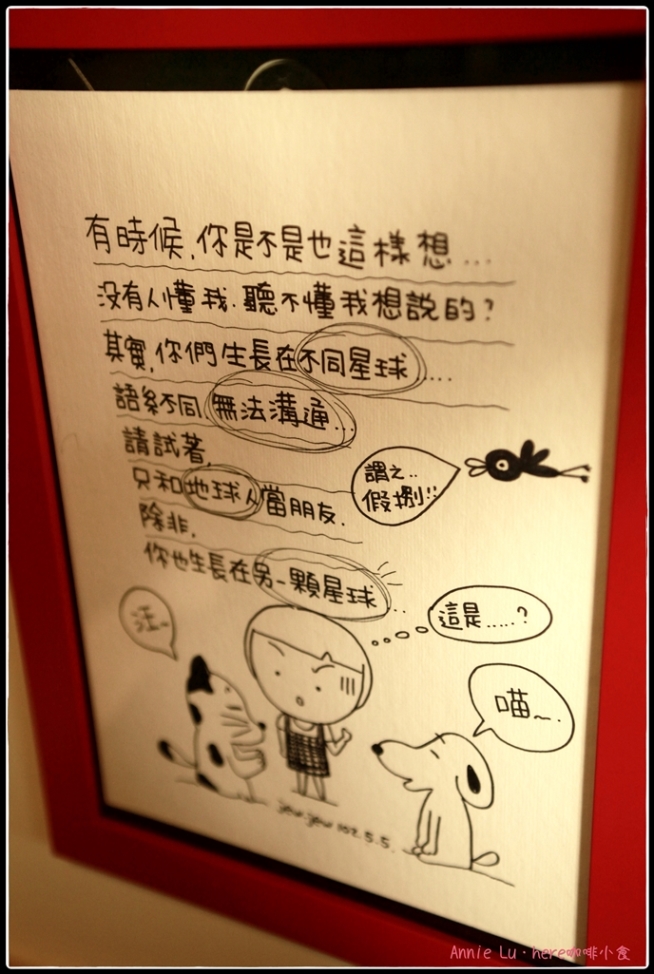 有時候,你是不是也這樣想...
没有人懂我.聽不懂我想說的?
其實,你們生長在不同星球...
語系不同,無法溝通...
請試著,
只和地球人當朋友.
除非,
你也生長在另一顆星球...
謂之..
假掰!!
這是......?
汪~
喵~.
yow.yow 102.5.5.
Annie Lu·here咖啡小食